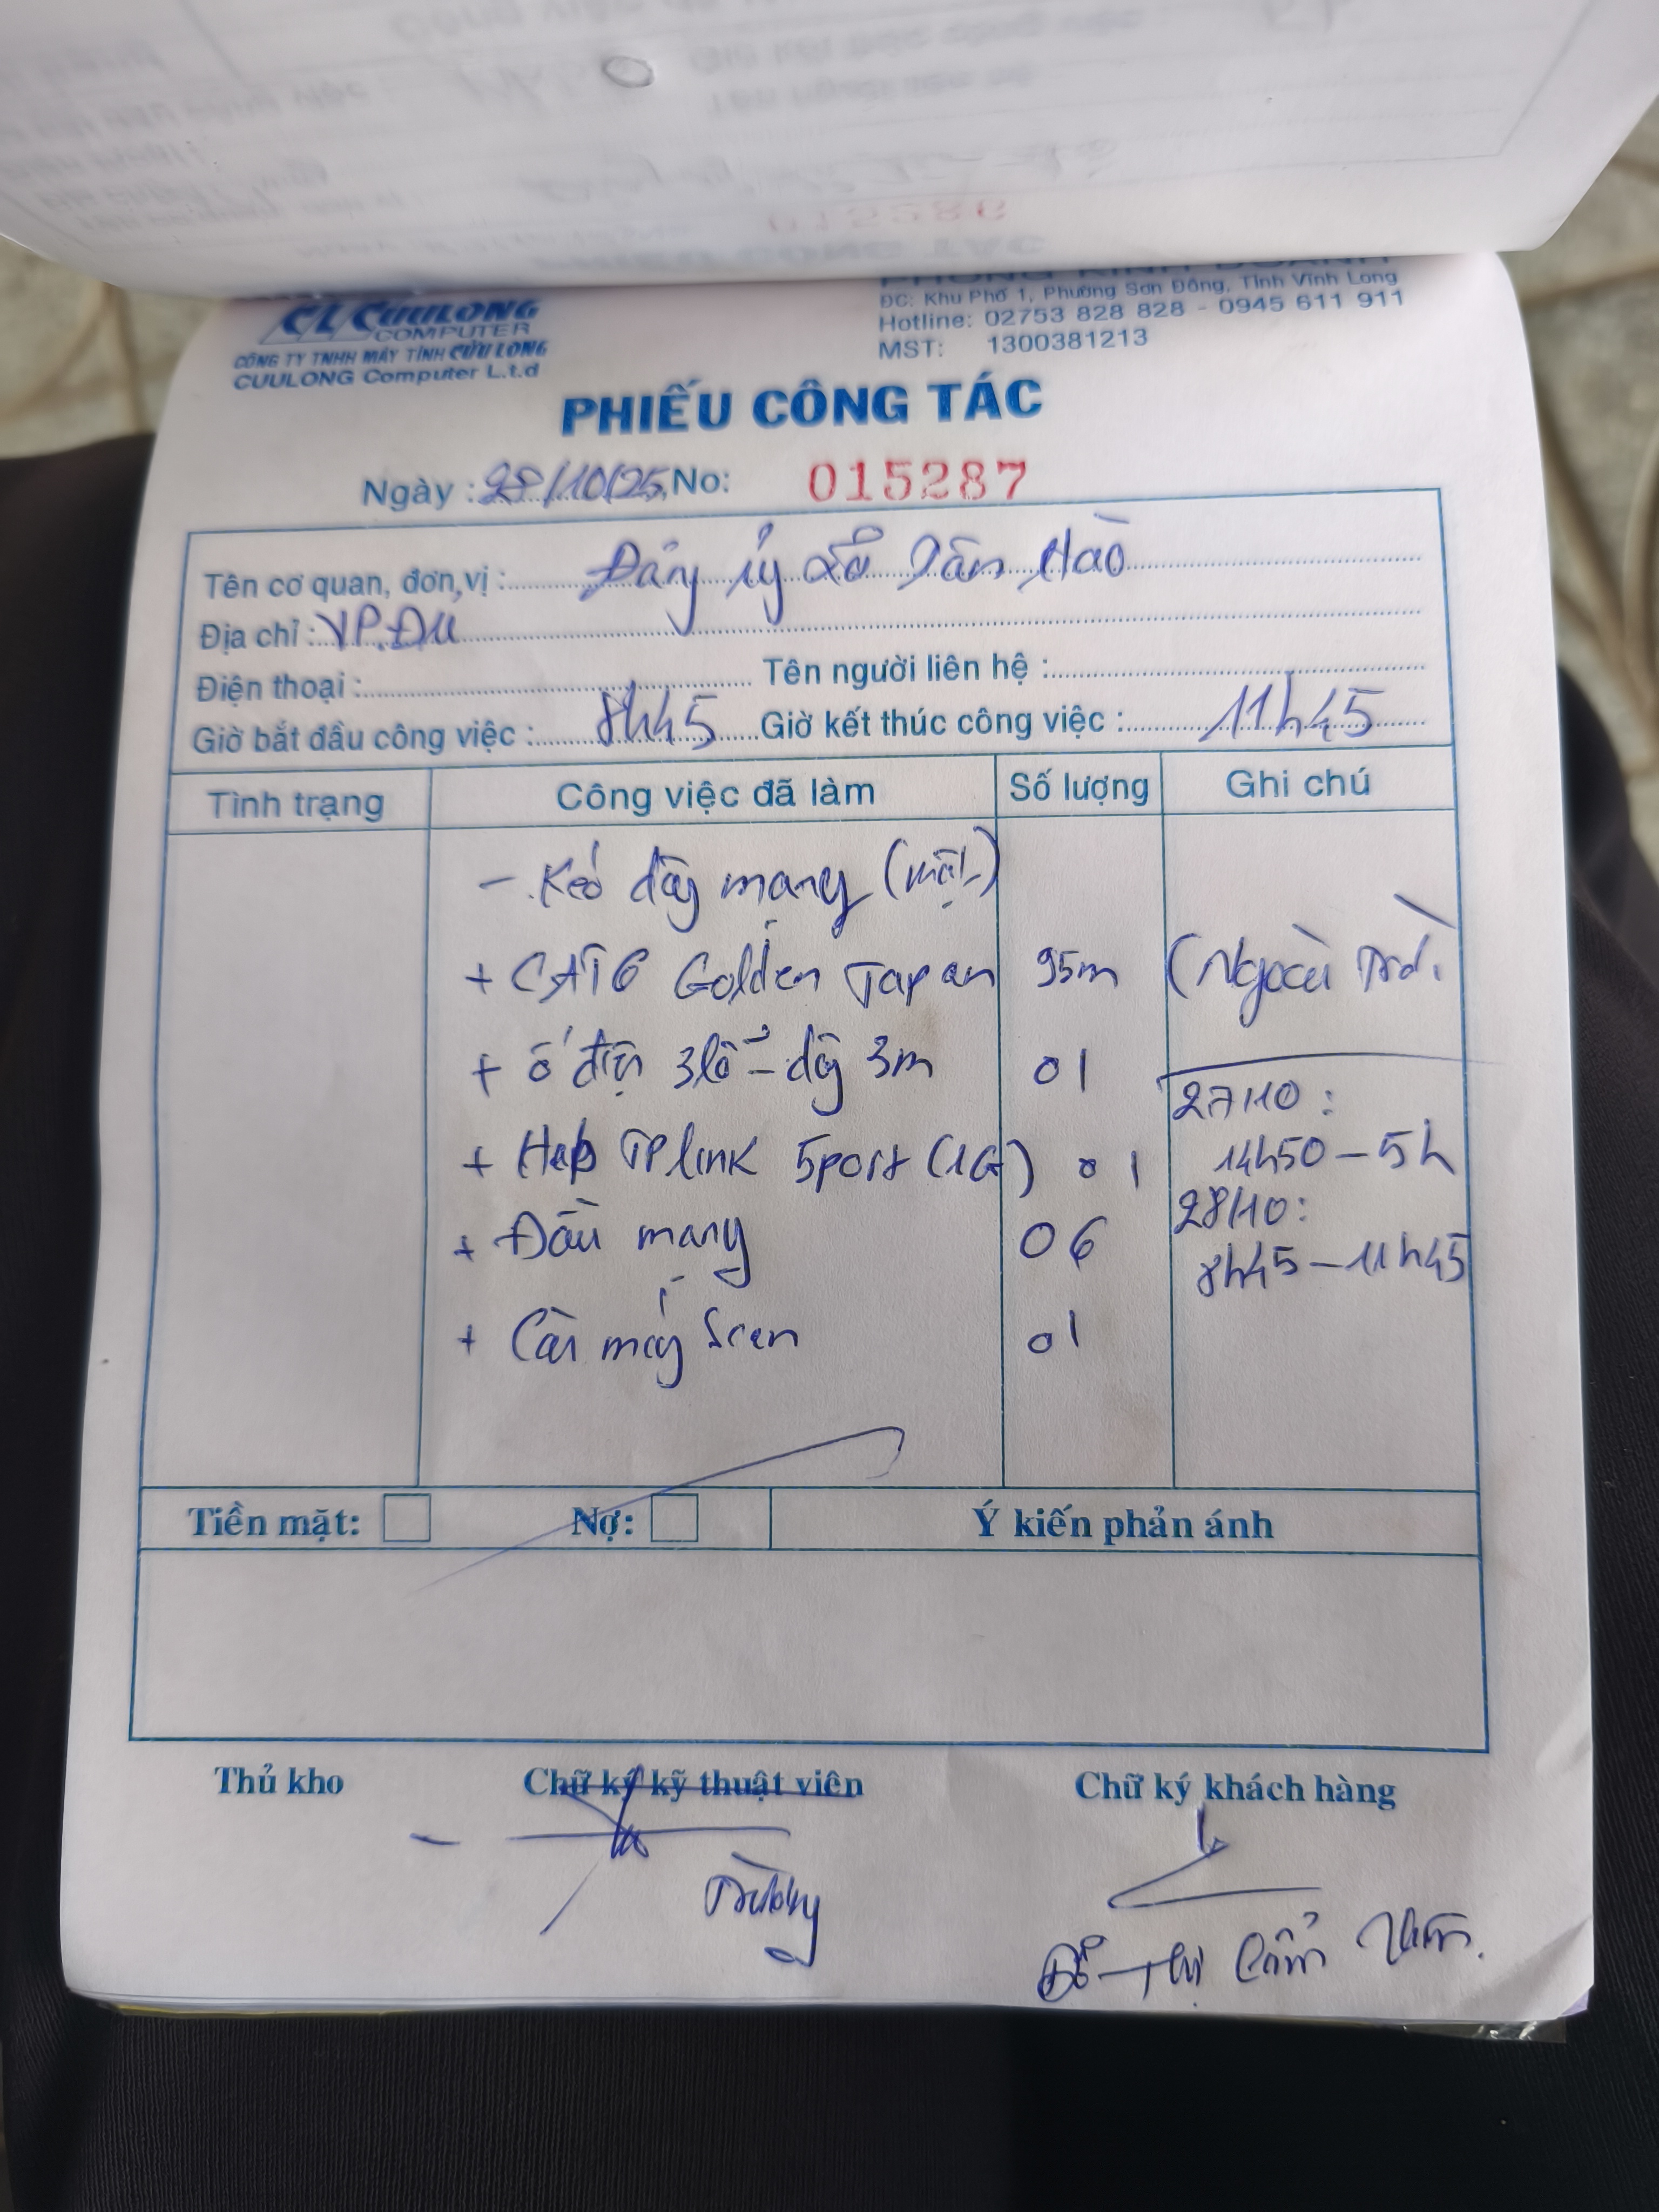 CL CUULONG
COMPUTER
CÔNG TY TNHH MÁY TÍNH CỬU LONG
CUULONG Computer L.t.d
PHÒNG KINH DOANH
ĐC: Khu Phố 1, Phường Sơn Đông, Tỉnh Vĩnh Long
Hotline: 02753 828 828 - 0945 611 911
MST: 1300381213
PHIẾU CÔNG TÁC
Ngày : 28/10/25 No: 015287
Tên cơ quan, đơn vị : Đảng ủy xã Tân Hào
Địa chỉ : VP.ĐU
Điện thoại : Tên người liên hệ :
Giờ bắt đầu công việc : 8h45 Giờ kết thúc công việc : 11h45
Tình trạng Công việc đã làm Số lượng Ghi chú
- Kéo dây mạng
+ CAT6 Golden Japan 95m (Ngoài Trời
+ ổ điện 3 lỗ - dây 3m 01
+ Hub TPlink 5port (1G) 01
+ Đầu mạng 06
+ Cài máy Scan 01
27/10 :
14h50 - 5h
28/10 :
8h45 - 11h45
Tiền mặt: Nợ: Ý kiến phản ánh
Thủ kho Chữ ký kỹ thuật viên Chữ ký khách hàng
Trường
Đỗ Thị Cẩm